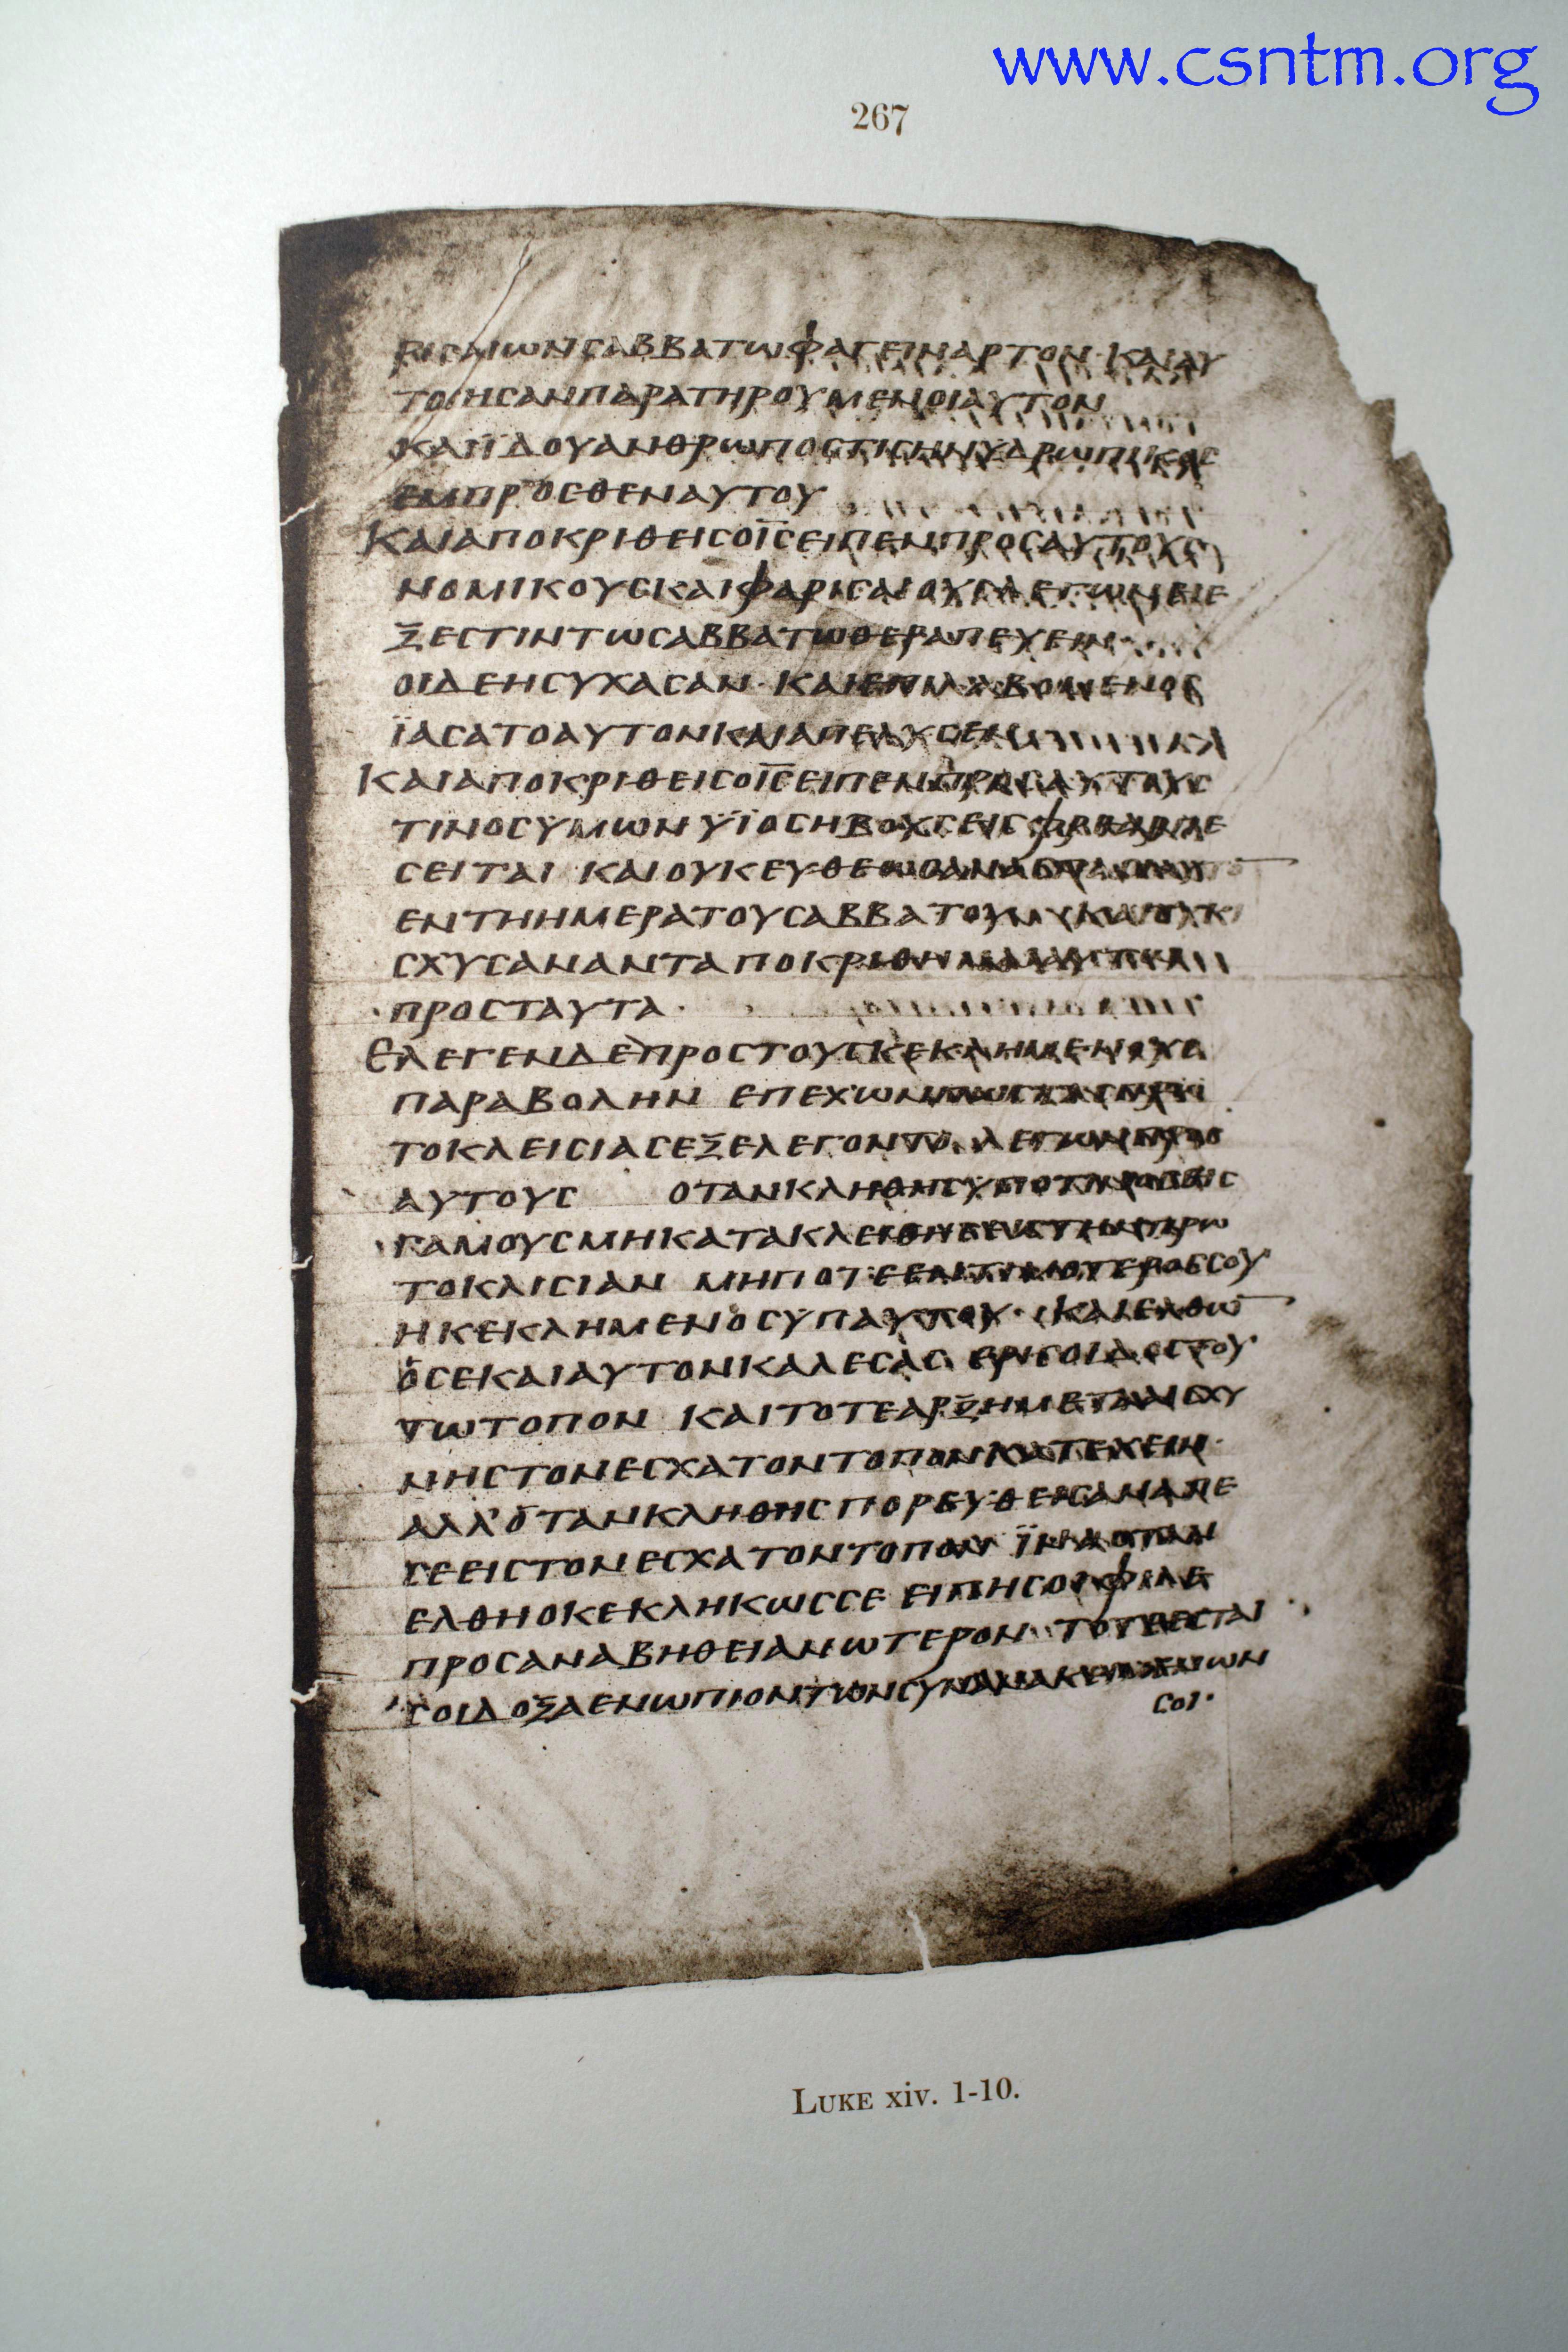 www.csntm.org
267
ΡΙCΑΙΩΝCΑΒΒΑΤΩΦΑΓΕΙΝΑΡΤΟΝ·ΚΑΙΑΥ
ΤΟΙΗCΑΝΠΑΡΑΤΗΡΟΥΜΕΝΟΙΑΥΤΟΝ
ΚΑΙΪΔΟΥΑΝΘΡΩΠΟCΤΙCΗΝΥΔΡΩΠΙΚΟC
ΕΜΠΡΟCΘΕΝΑΥΤΟΥ
ΚΑΙΑΠΟΚΡΙΘΕΙCΟΙ̅C̅ΕΙΠΕΝΠΡΟCΑΥΤΟΥC
ΝΟΜΙΚΟΥCΚΑΙΦΑΡΙCΑΙΟΥCΛΕΓΩΝΕΙΕ
ΞΕCΤΙΝΤΩCΑΒΒΑΤΩΘΕΡΑΠΕΥΕΙΝ
ΟΙΔΕΗCΥΧΑCΑΝ·ΚΑΙΕΠΙΛΑΒΟΜΕΝΟC
ΪΑCΑΤΟΑΥΤΟΝΚΑΙΑΠΕΛΥCΕΝ
ΚΑΙΑΠΟΚΡΙΘΕΙCΟΙ̅C̅ΕΙΠΕΝΠΡΟCΑΥΤΟΥC
ΤΙΝΟCΥΜΩΝΥΪΟCΗΒΟΥCΕΙCΦΡΕΑΡΠΕ
CΕΙΤΑΙ ΚΑΙΟΥΚΕΥΘΕΩC
ΕΝΤΗΗΜΕΡΑΤΟΥCΑΒΒΑΤΟΥ ΚΑΙΟΥΚ
CΧΥCΑΝΑΝΤΑΠΟΚΡΙΘΗΝΑΙ
·ΠΡΟCΤΑΥΤΑ·
ΕΛΕΓΕΝΔΕΠΡΟCΤΟΥCΚΕΚΛΗΜΕΝΟΥC
ΠΑΡΑΒΟΛΗΝ ΕΠΕΧΩΝ
ΤΟΚΛΕΙCΙΑCΕΞΕΛΕΓΟΝΤΟ ΛΕΓΩΝΠΡΟC
ΑΥΤΟΥC ΟΤΑΝΚΛΗΘΗCΥΠΟΤΙΝΟCΕΙC
ΓΑΜΟΥCΜΗΚΑΤΑΚΛΕΙΘΗCΕΙCΤΗΝΠΡΩ
ΤΟΚΛΙCΙΑΝ ΜΗΠΟΤΕΕΝΤΙΜΟΤΕΡΟCCΟΥ·
ΗΚΕΚΛΗΜΕΝΟCΥΠΑΥΤΟΥ·ΚΑΙΕΛΘΩ̅
ΟCΕΚΑΙΑΥΤΟΝΚΑΛΕCΑC ΕΡΙCΟΙΔΟCΤΟΥ·
ΤΩΤΟΠΟΝ ΚΑΙΤΟΤΕΑΡΞΗΜΕΤΑΙCΧΥ
ΝΗCΤΟΝΕCΧΑΤΟΝΤΟΠΟΝΚΑΤΕΧΕΙΝ·
ΑΛΛ'ΟΤΑΝΚΛΗΘΗCΠΟΡΕΥΘΕΙCΑΝΑΠΕ
CΕΕΙCΤΟΝΕCΧΑΤΟΝΤΟΠΟΝ ΪΝΑΟΤΑΝ
ΕΛΘΗΟΚΕΚΛΗΚΩCCΕ ΕΙΠΗCΟΙΦΙΛΕ
ΠΡΟCΑΝΑΒΗΘΕΙΑΝΩΤΕΡΟΝ· ΤΟΤΕΕCΤΑΙ
CΟΙΔΟΞΑΕΝΩΠΙΟΝΤΩΝCΥΝΑΝΑΚΕΙΜΕΝΩΝ
CΟΙ·
LUKE xiv. 1-10.